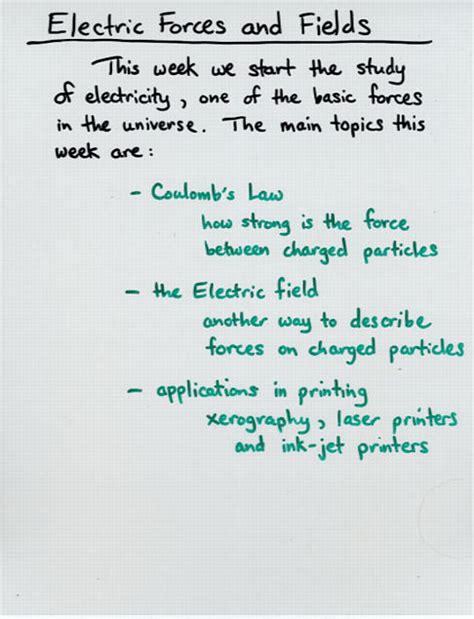 Electric Forces and Fields
This week we start the study
of electricity, one of the basic forces
in the universe. The main topics this
week are:
- Coulomb's Law
how strong is the force
between charged particles
- the Electric field
another way to describe
forces on charged particles
- applications in printing
xerography, laser printers
and ink-jet printers